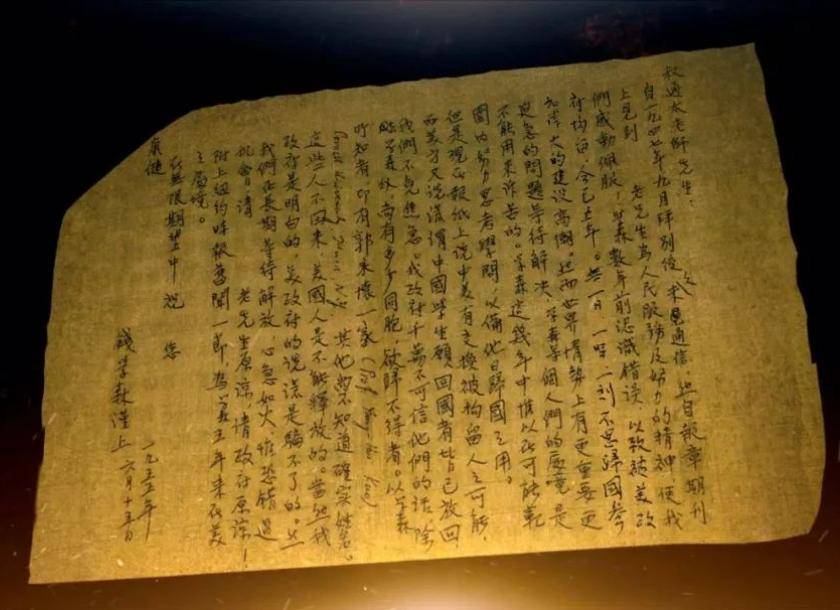 叔通太老師先生：
自一九四七年九月拜別後久未通信，然自報章期刊
上見到 老先生為人民服務及努力的精神，使我
們感動佩服！學森數年前認識錯誤，以致被美政
府拘留，今已五年。無一日一時一刻不思歸國參
加偉大的建設高潮。然而世界情勢上有更重要更
迫急的問題等待解決，學森等個人們的處境是
不能用來訴苦的。學森這幾年中惟以在可能範
圍內努力思考學問，以備他日歸國之用。
但是現在報紙上說中美有交換被拘留人之可能，
而美方又說謊謂中國學生願回國者皆已放回，
我們不免焦急。我政府千萬不可信他們的話，除
學森外，尚有多少同胞，欲歸不得者。以學森
所知者，即有郭永懷一家（Prof. Yung-huai Kuo,
其他尚不知道確實姓名。
這些人不回來，美國人是不能釋放的。當然我
政府是明白的，美政府的說謊是騙不了的。然
我們在長期等待解放，心急如火，惟恐錯過
機會，請 老先生原諒，請政府原諒！
附上紐約時報舊聞一節，為學森五年來在美
之處境。
在無限期望中祝 您
康健
錢學森謹上
一九五五年
六月十五日